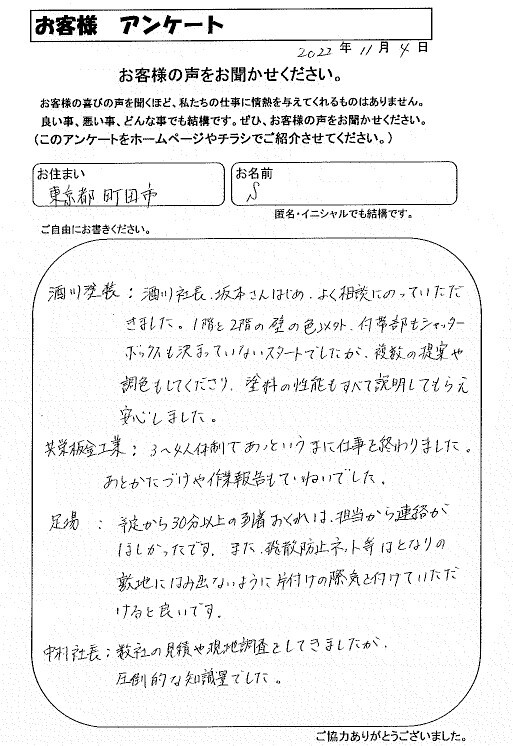 お客様 アンケート
2022年11月4日
お客様の声をお聞かせください。
お客様の喜びの声を聞くほど、私たちの仕事に情熱を与えてくれるものはありません。
良い事、悪い事、どんな事でも結構です。ぜひ、お客様の声をお聞かせください。
（このアンケートをホームページやチラシでご紹介させてください。）
お住まい
東京都 町田市
お名前
S
匿名・イニシャルでも結構です。
ご自由にお書きください。
酒川塗装：酒川社長、坂本さんはじめ、よく相談にのっていただ
きました。1階と2階の壁の色以外、付帯部もシャッター
ボックスも決まっていないスタートでしたが、複数の提案や
調色もしてくださり、塗料の性能もすべて説明してもらえ
安心しました。
共栄板金工業：3〜4人体制であっというまに仕事を終わりました。
あとかたづけや作業報告もていねいでした。
足場：予定から30分以上の到着おくれは、担当から連絡が
ほしかったです。また、飛散防止ネット等はとなりの
敷地にはみ出ないように片付けの際気を付けていただ
けると良いです。
中村社長：数社の見積や現地調査をしてきましたが、
圧倒的な知識量でした。
ご協力ありがとうございました。